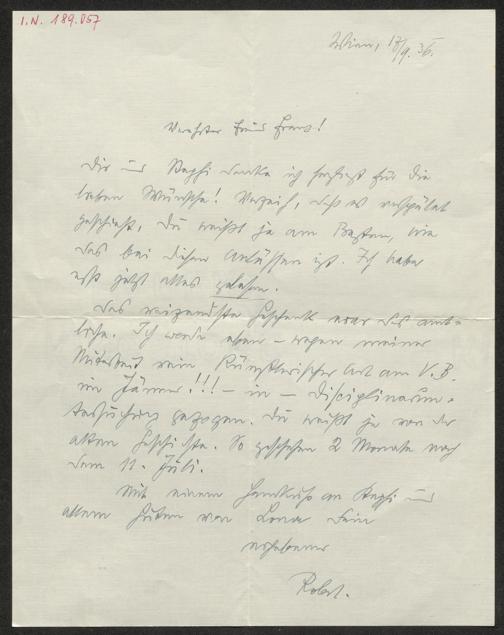 I.N. 189.057
Wien, 17/9. 36.
Verehrter Freund Franz!
Dir und Steffi danke ich herzlichst für die
lieben Wünsche! Verzeih, daß es verspätet
geschieht, Du weißt ja am Besten, wie
das bei diesen Anlässen ist. Ich habe
erst jetzt alles gelesen.
Das reizendste Geschenk war das amt-
liche. Ich werde eben – wegen meiner
Mitarbeit rein künstlerischer Art am V.B.
im Jänner!!! – in – Disziplinarun-
tersuchung gezogen. Du weißt ja von der
alten Geschichte. So geschehen 2 Monate nach
dem 11. Juli.
Mit einem Handkuß an Steffi und
allem Guten von Lona Dein
ergebener
Robert.